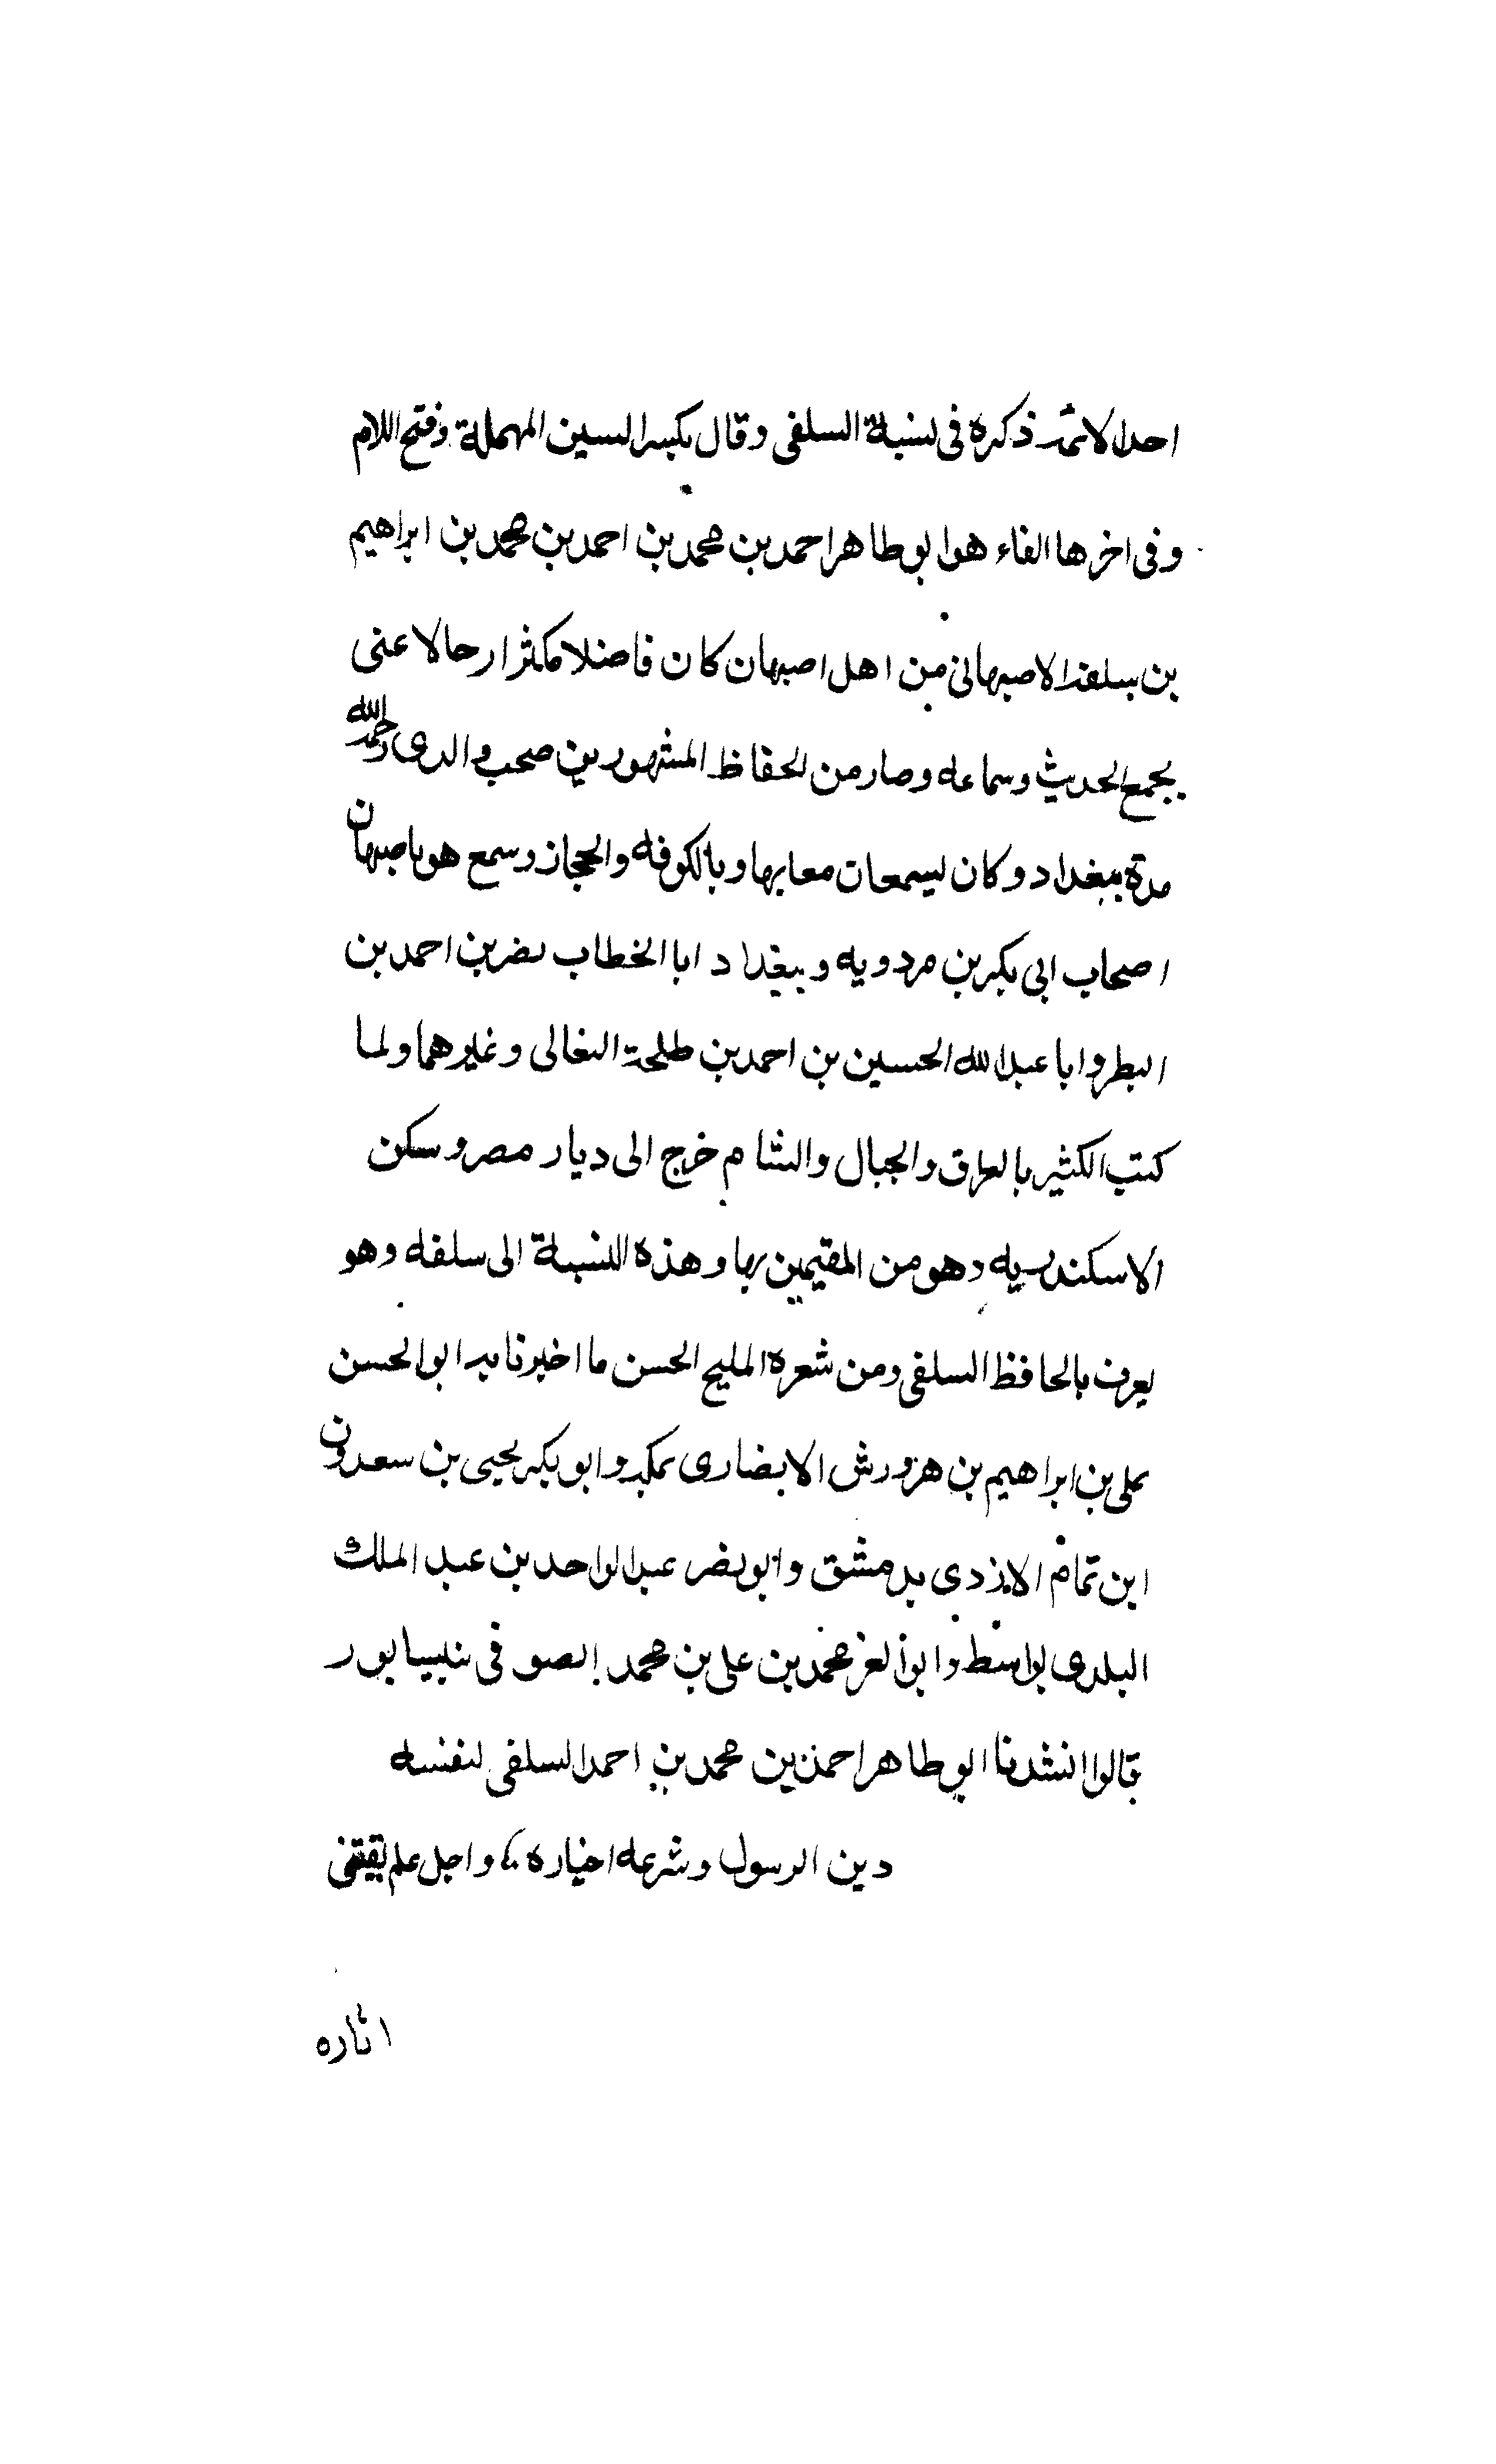 احد الائمة ذكره فى لنسبة السلفى وقال بكسر السين المهملة وفتح اللام
وفى اخرها الفاء هو ابو طاهر احمد بن محمد بن احمد بن محمد بن ابراهيم
بن سلفة الاصبهانى من اهل اصبهان كان فاضلا مكثرا رحالا عنى
بجمع الحديث وسماعه وصار من الحفاظ المشهورين صحب والدى رحمه الله
مدة ببغداد وكان يسمعان معا بها وبالكوفه والحجاز وسمع هو باصبهان
اصحاب ابى بكر بن مردويه وببغداد ابا الخطاب نصر بن احمد بن
البطر وابا عبد الله الحسين بن احمد بن طلحة النعالى وغيرهما ولما
كتب الكثير بالعراق والجبال والشام خرج الى ديار مصر وسكن
الاسكندريه وهو من المقيمين بها وهذه النسبة الى سلفه وهو
يعرف بالحافظ السلفى ومن شعره المليح الحسن ما اخبرنا به ابو الحسن
على بن ابراهيم بن هزورش الانصارى بمكة وابو بكر يحيى بن سعدون
ابن تمام الازدى بدمشق وابو نصر عبد الواحد بن عبد الملك
البلدى بواسط وابو العز محمد بن على بن محمد الصوفى بنيسابور
قالوا انشدنا ابو طاهر احمد بن محمد بن احمد السلفى لنفسه
دين الرسول وشرعه اخباره ؛ واجل علم يقتفى
اثاره